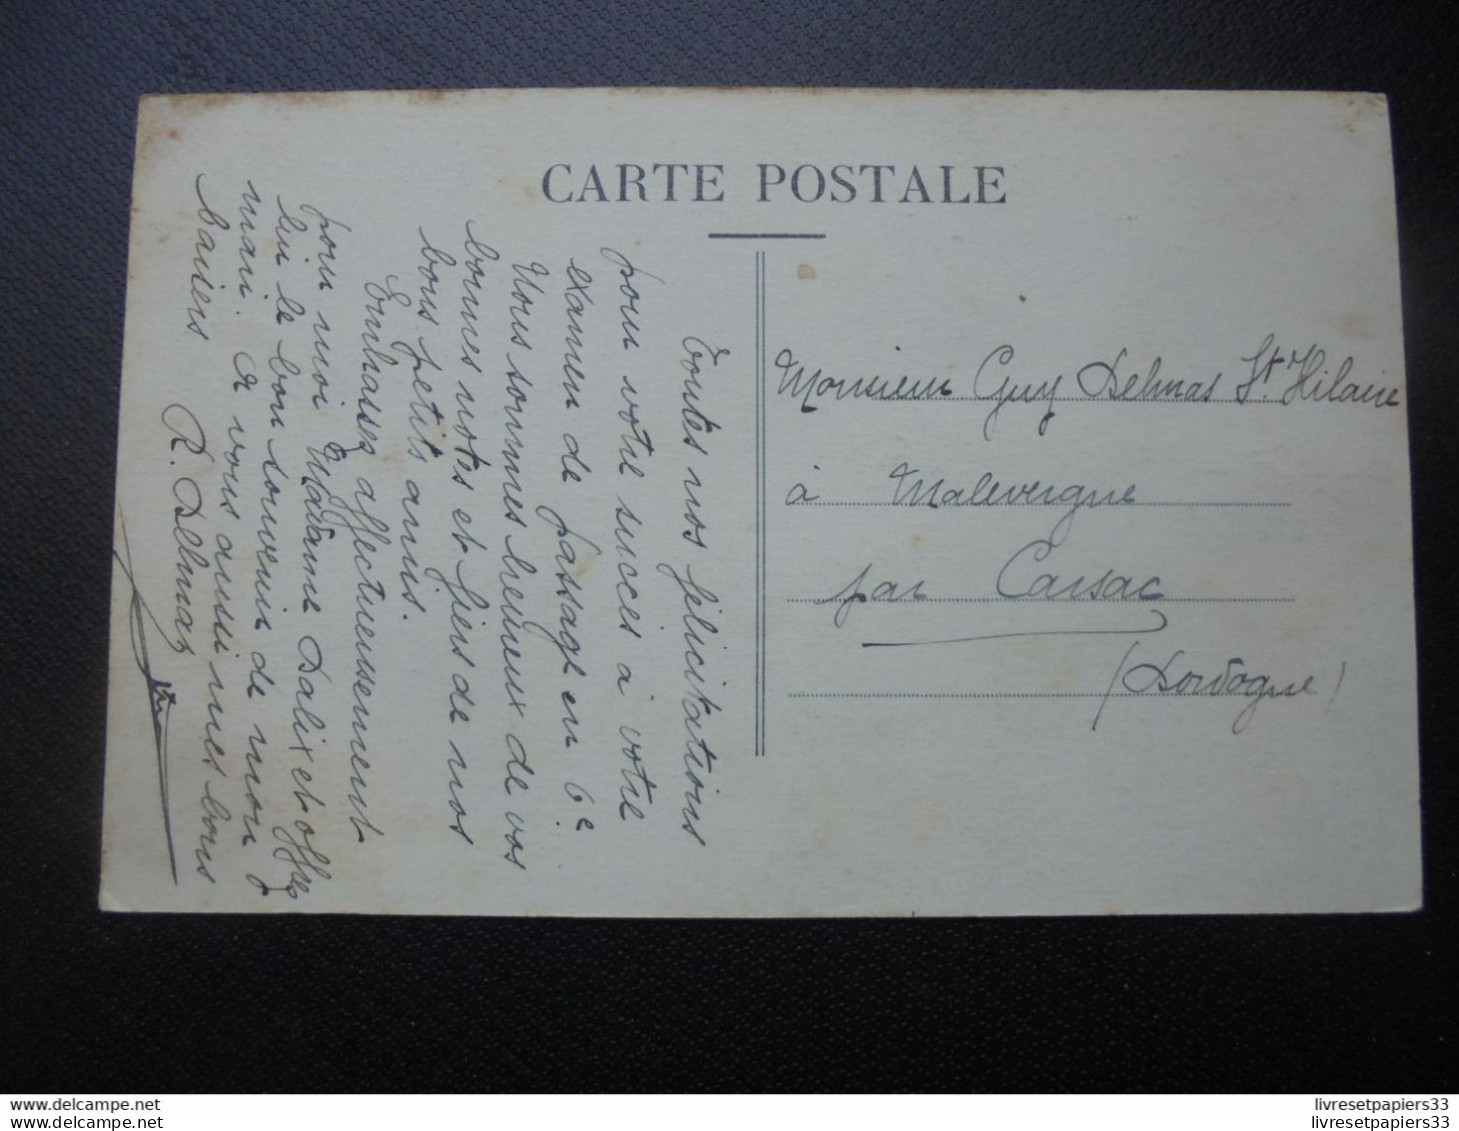 CARTE POSTALE
Toutes nos félicitations
pour votre succès à votre
examen de passage en 6e
Nous sommes heureux de vos
bonnes notes et fiers de nos
bons petits amis.
Embrassez affectueusement
pour moi Madame Dalix et offrez
lui le bon souvenir de mon
mari. A vous aussi mes bons
baisers
R. Delmas
Monsieur Guy Delmas St Hilaire
à Malevergne
par Carsac
(Dordogne)
www.delcampe.net livresetpapiers33
www.delcampe.net livresetpapiers33